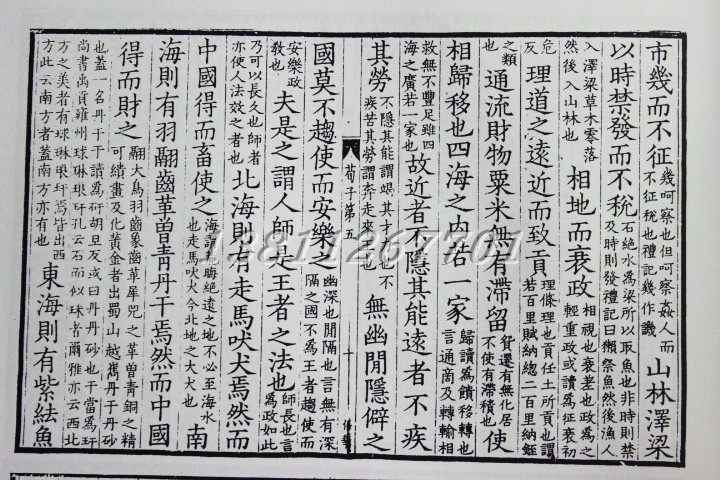 市幾而不征幾呵察也但呵察姦人而不征稅也禮記幾作譏山林澤梁
以時禁發而不稅石絕水為梁所以取魚也非時則禁及時則發禮記曰獺祭魚然後漁人
入澤梁草木零落然後入山林也相地而衰政相視也衰差也政為之輕重政或讀為征衰初
危反理道之遠近而致貢理條理也貢任土所貢也謂若百里賦納緫二百里納銍
之類也通流財物粟米無有滯留貨遷有無化居不使有滯積也使
相歸移也四海之内若一家歸讀為饋移轉也言通商及轉輸相
救無不豐足雖四海之廣若一家也故近者不隱其能遠者不疾
其勞不隱其能謂竭其才力也不疾苦其勞謂奔走來王也無幽閒隱僻之
荀子第五 十
國莫不趨使而安樂之幽深也閒隔也言無有深隔之國不為王者趨使而
安樂政敎也夫是之謂人師是王者之法也師長也言為政如此
乃可以長久也師者亦使人法效之者也北海則有走馬吠犬焉然而
中國得而畜使之海謂荒晦絕遠之地不必至海水也走馬吠犬今北地之大犬也南
海則有羽翮齒革曾青丹干焉然而中國
得而財之翮大鳥羽齒象齒革犀兕之革曾青銅之精可繢畫及化黃金者出蜀山越嶲丹干丹砂
也蓋一名丹干干讀為矸胡旦反或曰丹丹砂也干當為玕尚書禹貢雍州球琳琅玕孔云石而似珠者爾雅亦云西北
方之美者有球琳琅玕焉皆出西方此云南方者蓋南方亦有也東海則有紫紶魚
13811267701